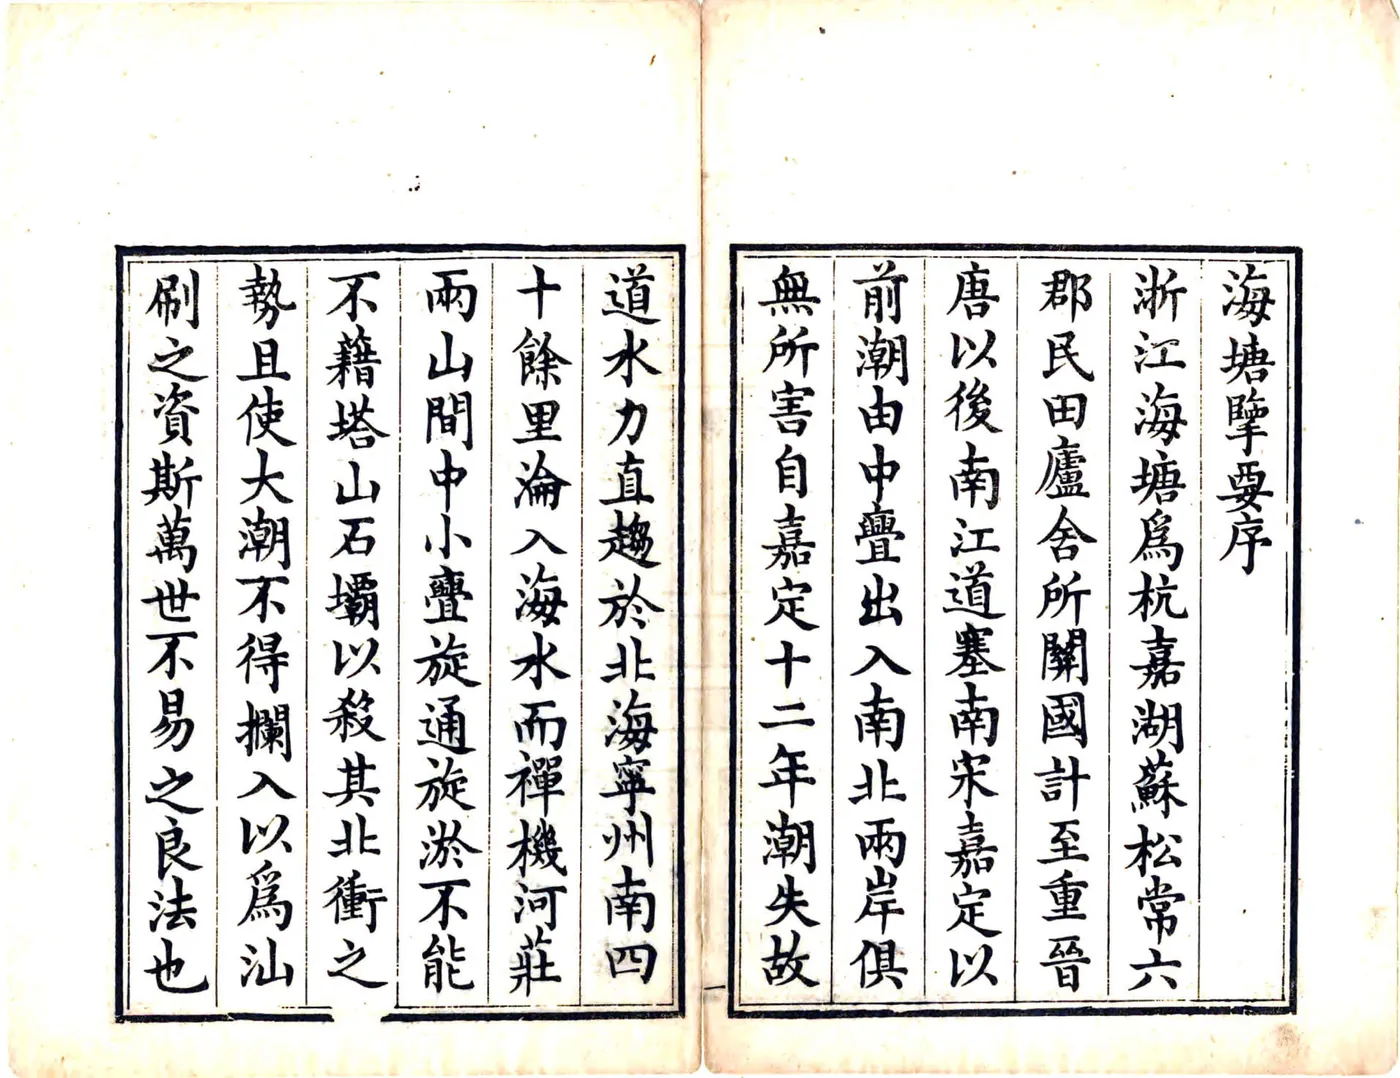 海塘擥要序
浙江海塘爲杭嘉湖蘇松常六
郡民田廬舍所關國計至重晉
唐以後南江道塞南宋嘉定以
前潮由中亹出入南北兩岸俱
無所害自嘉定十二年潮失故
道水力直趨於北海寧州南四
十餘里淪入海水而禪機河莊
兩山間中小亹旋通旋淤不能
不藉塔山石壩以殺其北衝之
勢且使大潮不得攔入以爲汕
刷之資斯萬世不易之良法也